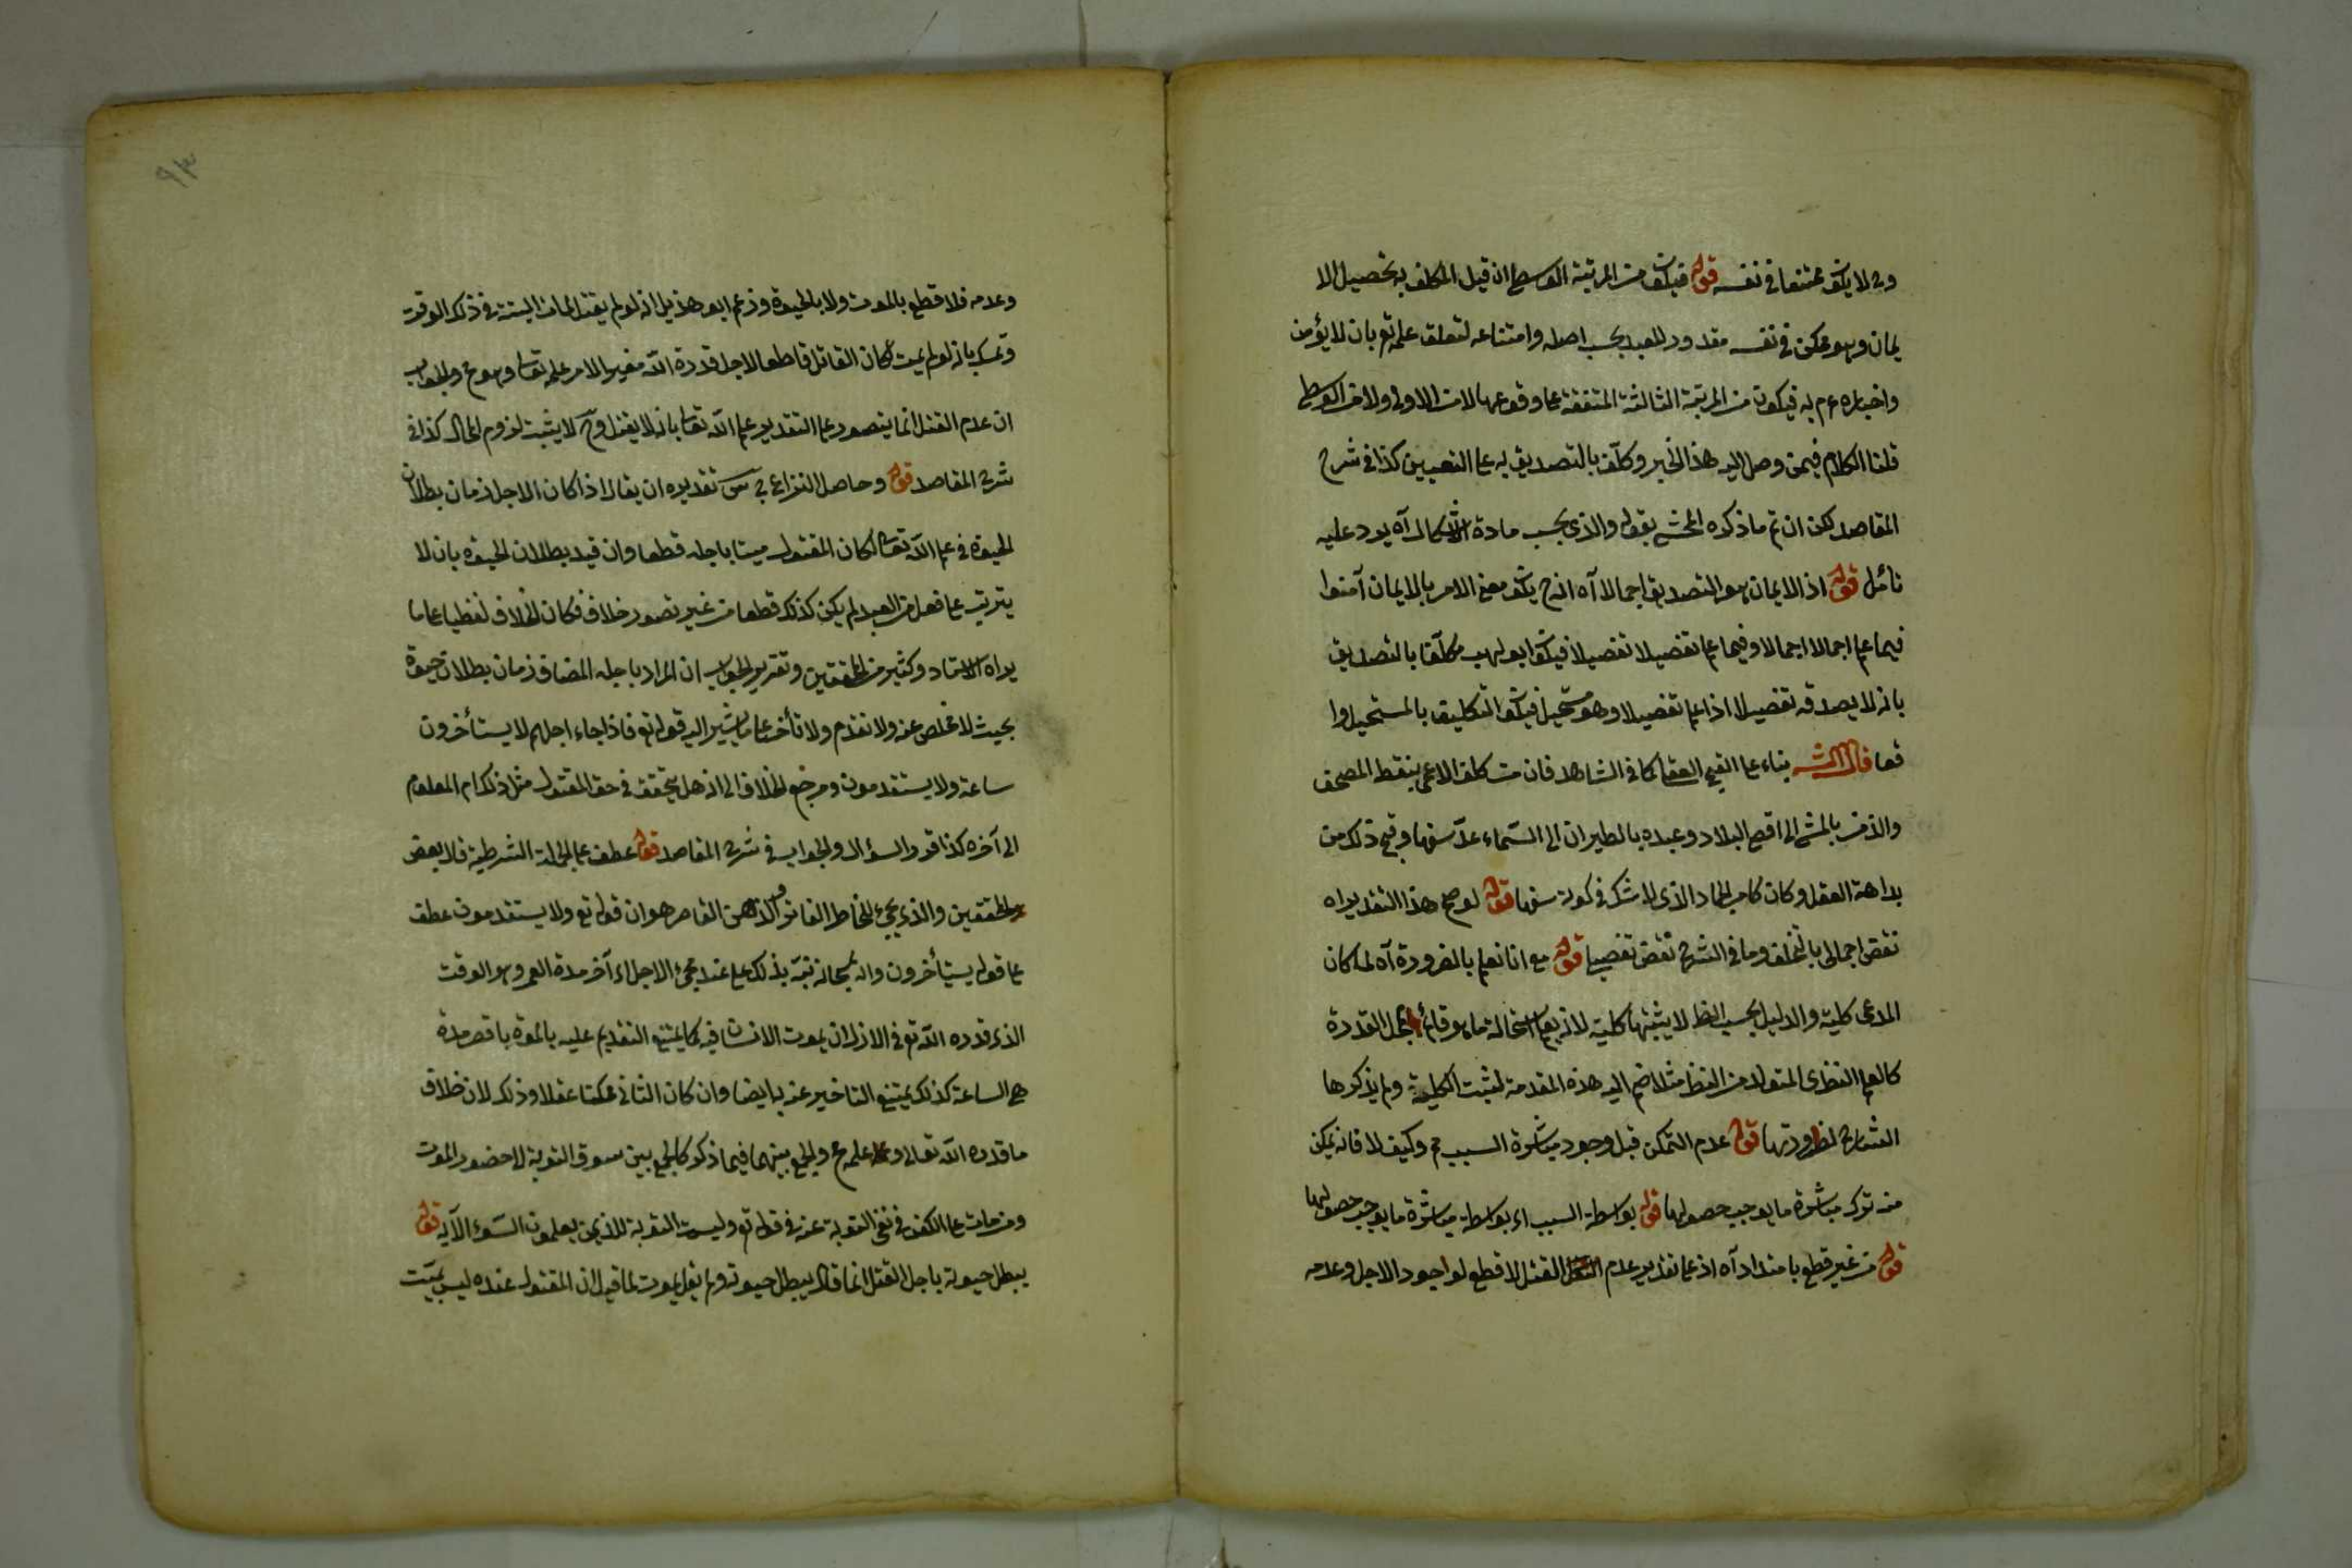 وح لا يكون ممتنعا في نفسه قوله فيكون من المرتبة الوسطى ان قيل المكلف به تحصيل الا
يمان وهو ممكن في نفسه مقدور للعبد بحسب اصله وامتناعه لتعلق علمه تع بان لا يؤمن
واخباره عم به فيكون من المرتبة الثالثة المتفقة على وقوعها لا من الاولى ولا من الوسطى
قلنا الكلام فيمن وصل اليه هذا الخبر وكلف بالتصديق به على التعيين كذا في شرح
المقاصد لكن ان تم ما ذكره المحشي بقوله والذي يحسم مادة الاشكال آه يرد عليه
تأمل قوله اذ الايمان هو التصديق اجمالا آه اذ ح يكون معنى الامر بالايمان آمنوا
فيما علم اجمالا اجمالا وفيما علم تفصيلا تفصيلا فيكون ابو لهب مكلفا بالتصديق
بانه لا يصدقه تفصيلا اذا علم تفصيلا وهو مستحيل فيكون التكليف بالمستحيل وا
قعا قال الش بناء على القبح العقلي كما في الشاهد فان من كلف الاعمى بنقط المصحف
والزمن بالمشي الى اقصى البلاد وعبده بالطيران الى السماء عد سفيها وقبح ذلك من
بداهة العقل وكان كامر الجماد الذي لا شك في كونه سفها قوله لو صح هذا التقدير اه
نقض اجمالي بالتخلف وما في الشرح نقض تفصيلي قوله مع انا نعلم بالضرورة آه لما كان
المدعى كلية والدليل بحسب الظ لا يثبتها كلية لانه يعم استحالة ما هو قائم بمحل القدرة
كالعلم النظري المتولد من النظر مثلا ضم اليه هذه المقدمة لتثبت الكلية ولم يذكرها
الشارح لظهورتها قوله عدم التمكن قبل وجود مباشرة السبب مم وكيف لا فانه يمكن
منه ترك مباشرة ما يوجب حصولها قوله بواسطة السبب اي بواسطة مباشرة ما يوجب حصولها
قوله من غير قطع بامتداد آه اذ على تقدير عدم القتل لا قطع لوجود الاجل وعدمه
وعدمه فلا قطع بالموت ولا بالحيوة وزعم ابو هذيل انه لو لم يقتل لمات البتة في ذلك الوقت
وتمسك بانه لو لم يمت لكان القاتل قاطعا لاجل قدره الله مغيرا لامر علمه تعا وهو مح والجواب
ان عدم القتل انما يتصور على التقدير علم الله تعا بانه لا يقتل وح لا يثبت لزوم المحال كذا في
شرح المقاصد قوله وحاصل النزاع تقديره ان يقال اذا كان الاجل زمان بطلان
الحيوة في علم الله تعا لكان المقتول ميتا باجله قطعا وان قيد بطلان الحيوة بان لا
يترتب على فعل من العبد لم يكن كذلك قطعا من غير تصور خلاف فكان الخلاف لفظيا على ما
يراه الاستاد وكثير من المحققين وتقرير الجواب ان المراد باجله المضاف زمان بطلان حيوة
بحيث لا مخلص عنه ولا تقدم ولا تأخر على ما يشير اليه قوله تع فاذا جاء اجلهم لا يستأخرون
ساعة ولا يستقدمون ومرجع الخلاف الى انه هل يتحقق في حق المقتول مثل ذلك ام المعلوم
الى آخره كذا قرر السؤال والجواب في شرح المقاصد قوله عطف على الجملة الشرطية قال بعض
المحققين والذي يجيء للخاطر الفاتر والذهن القاصر هو ان قوله تع ولا يستقدمون عطف
على قوله يستأخرون وانه سبحانه نبه بذلك على عند مجيء الاجل اي آخر مدة العمر وهو الوقت
الذي قدره الله تع في الازل ان يموت الانسان فيه كما يمتنع التقديم عليه بالموت باقصر مدة
هي الساعة كذلك يمتنع التاخير عنه بها ايضا وان كان الثاني ممكنا عقلا وذلك لان خلاف
ما قدره الله تعالى وعلمه مح والجمع بينهما فيما ذكر كالجمع بين سوق التوبة الى حضور الموت
ومن مات على الكفر في نفي التوبة عنه في قوله تع وليست التوبة للذين يعملون السوء الآية قوله
يبطل حيوته باجل القتل انما قال يبطل حيوته ولم يقل يموت لما قيل ان المقتول عنده ليس بميت